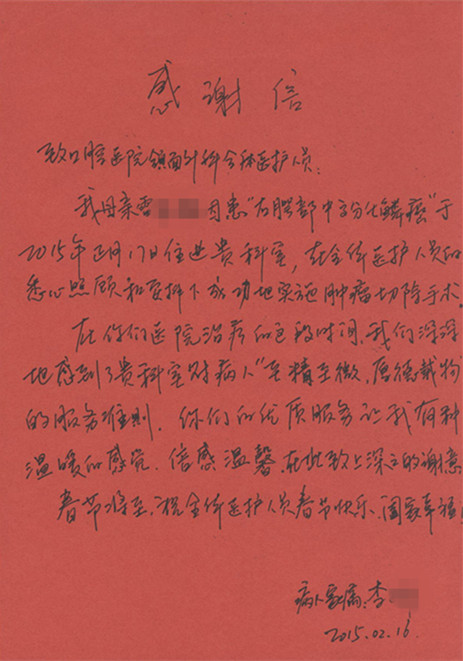 感谢信
致口腔医院颌面外科全体医护人员:
我母亲曹 因患“右腭部中分化鳞癌”于
2015年2月17日住进贵科室,在全体医护人员的
悉心照顾和安排下成功地实施肿瘤切除手术。
在你们医院治疗的这段时间,我们深深
地感到了贵科室对病人“至精至微、厚德载物”
的服务准则。你们的优质服务让我有种
温暖的感觉,倍感温馨,在此致上深文的谢意
春节将至,祝全体医护人员春节快乐、阖家幸福!
病人家属:李
2015.02.16